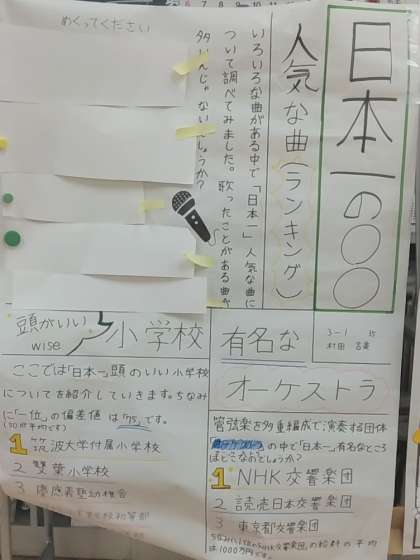 日本一の〇〇
人気な曲(ランキング)
いろいろな曲がある中で「日本一」人気な曲に
ついて調べてみました。歌ったことがある曲が
多いんじゃないでしょうか?
めくってください
頭がいい
wise
小学校
ここでは「日本一」頭のいい小学校
についてを紹介していきます。ちなみ
に「一位」の偏差値は「75」です。
(50が平均です)
1 筑波大学付属小学校
2 雙葉小学校
3 慶応義塾幼稚舎
3-1 35
村田
有名な
オーケストラ
管弦楽を多重編成で演奏する団体
「オーケストラ」の中で「日本一」有名なところ
はどこなおでしょうか?
1 NHK交響楽団
2 読売日本交響楽団
3 東京都交響楽団
ちなみに1位のNHK交響楽団の給料の平均
は1000万円です。